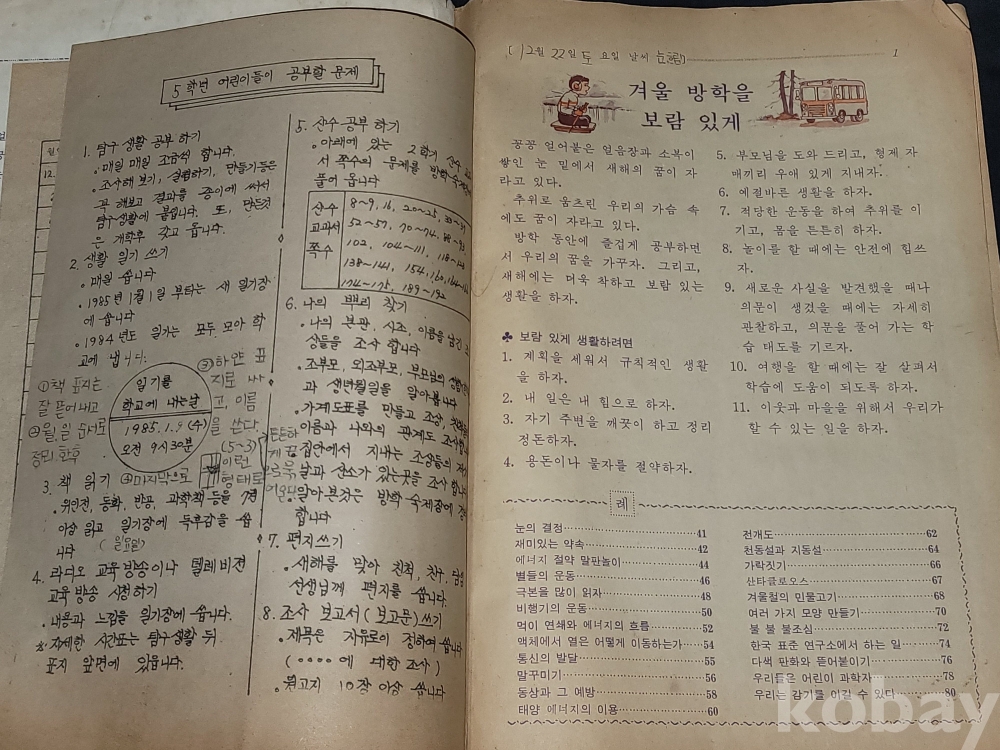 5학년 어린이들이 공부할 문제
1. 탐구 생활 공부 하기
• 매일 매일 조금씩 합니다.
• 조사해 보기, 실험하기, 만들기등은
꼭 해보고 결과를 종이에 써서
탐구생활에 붙입니다. 또, 만든것
은 개학후 갖고 옵니다.
2. 생활 일기 쓰기
• 매일 씁니다
• 1985년 1월 1일 부터는 새 일기장
에 씁니다
• 1984년도 일기는 모두 모아 학
교에 냅니다.
일기를
학교에 내는날
1985.1.9 (수)
오전 9시30분
①책 표지는
잘 뜯어내고
②월, 일 순서로
정리한후
③하얀 표
지로 싸
고, 이름
을 쓴다
(5-3)
④마지막으로
이런
형태로
3. 책 읽기
• 위인전, 동화, 반공, 과학책 등을 7권
이상 읽고 일기장에 독후감을 씁
니다
(일요일)
4. 라디오 교육방송이나 텔레비젼
교육 방송 시청하기
• 내용과 느낌을 일기장에 씁니다.
* 자세한 시간표는 탐구생활 뒤
표지 앞면에 있읍니다.
5. 산수공부 하기
• 아래에 있는 2학기 산수
서 쪽수의 문제를 방학 숙제장에
풀어 옵니다
산수
교과서
쪽수
8~9, 16, 20~25,
52~57, 70~74,
102, 104~111,
138~141, 154,
174~175, 189~192
6. 나의 뿌리 찾기
• 나의 본관, 시조, 이름을 남긴
상들을 조사 합니다
• 조부모, 외조부모, 부모님의
과 생년월일을 알아봅니다
• 가계도표를 만들고 조상,
이름과 나와의 관계도
집안에서 지내는 조상들의
날과 산소가 있는곳을 조사 합니다
• 알아본것은 방학 숙제장에
합니다
7. 편지쓰기
• 새해를 맞아 친척, 친구,
선생님께 편지를 씁니다.
8. 조사 보고서(보고문)쓰기
• 제목은 자유로이 정하여 씁니다
(••••에 대한 조사)
• 원고지 10장 이상 씁니다
〔12월 22일 토 요일 날씨
1
겨울 방학을
보람 있게
꽁꽁 얼어붙은 얼음장과 소복이
쌓인 눈 밑에서 새해의 꿈이 자
라고 있다.
추위로 움츠린 우리의 가슴 속
에도 꿈이 자라고 있다.
방학 동안에 즐겁게 공부하면
서 우리의 꿈을 가꾸자. 그리고,
새해에는 더욱 착하고 보람 있는
생활을 하자.
♣ 보람 있게 생활하려면
1. 계획을 세워서 규칙적인 생활
을 하자.
2. 내 일은 내 힘으로 하자.
3. 자기 주변을 깨끗이 하고 정리
정돈하자.
4. 용돈이나 물자를 절약하자.
5. 부모님을 도와 드리고, 형제 자
매끼리 우애 있게 지내자.
6. 예절바른 생활을 하자.
7. 적당한 운동을 하여 추위를 이
기고, 몸을 튼튼히 하자.
8. 놀이를 할 때에는 안전에 힘쓰
자.
9. 새로운 사실을 발견했을 때나
의문이 생겼을 때에는 자세히
관찰하고, 의문을 풀어 가는 학
습 태도를 기르자.
10. 여행을 할 때에는 잘 살펴서
학습에 도움이 되도록 하자.
11. 이웃과 마을을 위해서 우리가
할 수 있는 일을 하자.
례
눈의 결정 41
재미있는 약속 42
에너지 절약 말판놀이 44
별들의 운동 46
극본을 많이 읽자 48
비행기의 운동 50
먹이 연쇄와 에너지의 흐름 52
액체에서 열은 어떻게 이동하는가 54
통신의 발달 55
말꾸미기 56
동상과 그 예방 58
태양 에너지의 이용 60
전개도 62
천동설과 지동설 64
가락짓기 66
산타클로오스 67
겨울철의 민물고기 68
여러 가지 모양 만들기 70
불 불 불조심 72
한국 표준 연구소에서 하는 일 74
다색 만화와 뜯어붙이기 76
우리들은 어린이 과학자 78
우리는 감기를 이길 수 있다 80
kobay